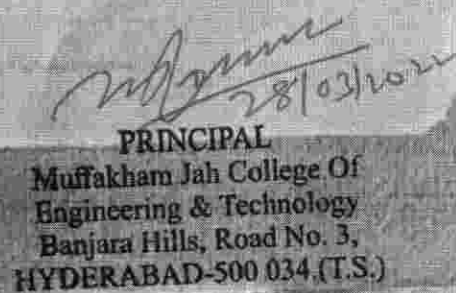 28/03/2022
PRINCIPAL
Muffakham Jah College Of
Engineering & Technology
Banjara Hills, Road No. 3,
HYDERABAD-500 034.(T.S.)